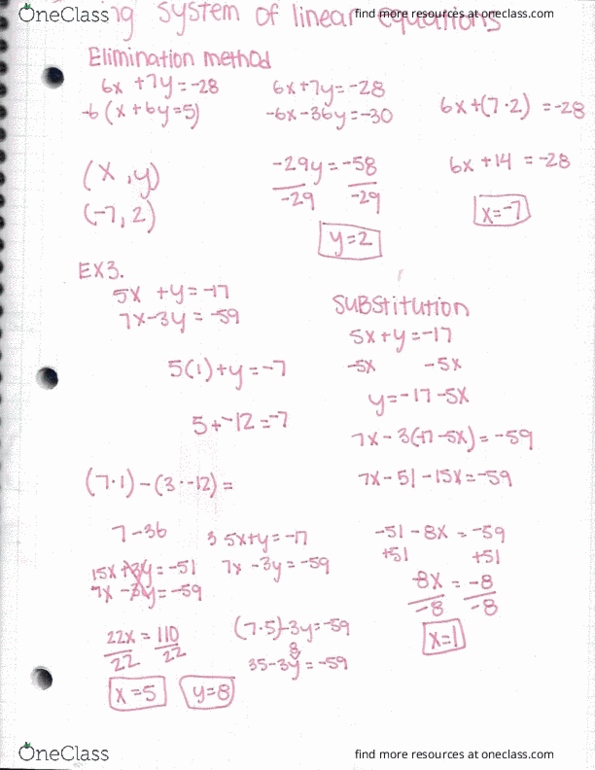 OneClass
find more resources at oneclass.com
system of linear equations
Elimination method
6x + 7y = -28
-6 (x + 6y = 5)
(x, y)
(-7, 2)
6x + 7y = -28
-6x - 36y = -30
-29y = -58
-29 -29
y = 2
6x + (7·2) = -28
6x + 14 = -28
x = -7
EX3.
5x + y = -17
7x - 3y = -59
5(1) + y = -7
5 + -12 = -7
(7·1) - (3·-12) =
7 - 36
15x + 3y = -51
7x - 3y = -59
22x = 110
22 22
x = 5
y = 8
3 5x + y = -17
7x - 3y = -59
(7·5) - 3y = -59
8
35 - 3y = -59
SUBSTITUTION
5x + y = -17
-5x -5x
y = -17 - 5x
7x - 3(-17 - 5x) = -59
7x - 51 - 15x = -59
-51 - 8x = -59
+51 +51
-8x = -8
-8 -8
x = 1
OneClass
find more resources at oneclass.com